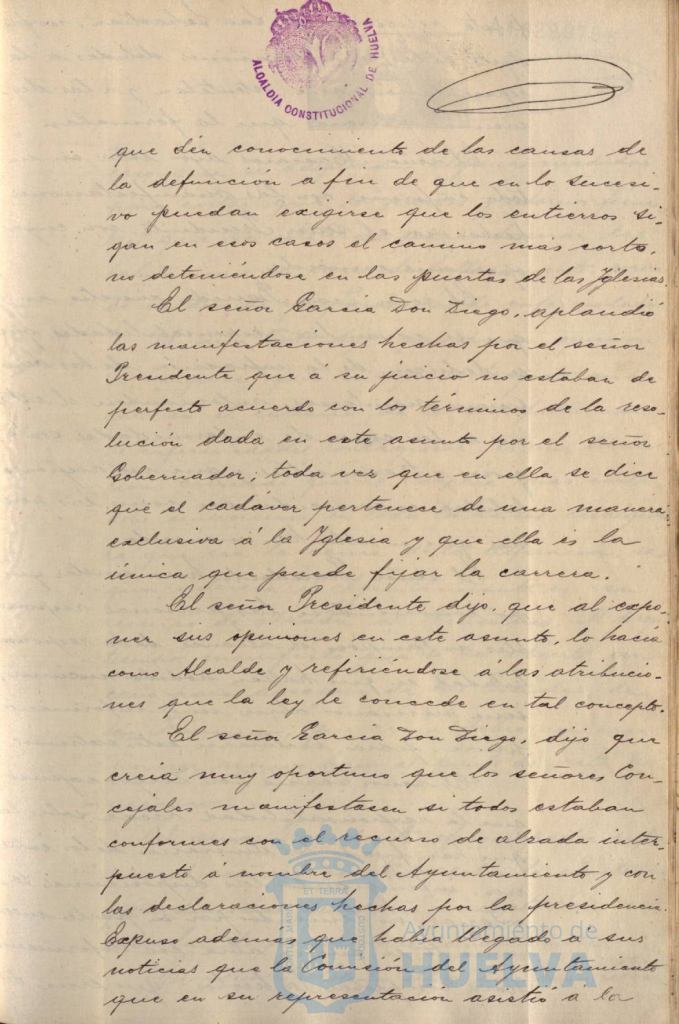 ALCALDIA CONSTITUCIONAL DE HUELVA
que dén conocimiento de las causas de
la defunción á fin de que en lo sucesi-
vo puedan exigirse que los entierros si-
gan en esos casos el camino mas corto,
no deteniéndose en las puertas de las Yglesias.
El señor García Don Diego, aplaudió
las manifestaciones hechas por el señor
Presidente que á su juicio no estaban de
perfecto acuerdo con los términos de la reso-
lución dada en este asunto por el señor
Gobernador; toda vez que en ella se dice
que el cadáver pertenece de una manera
exclusiva á la Yglesia y que ella es la
única que puede fijar la carrera.
El señor Presidente dijo, que al expo-
ner sus opiniones en este asunto, lo hacía
como Alcalde y refiriéndose á las atribucio-
nes que la ley le concede en tal concepto.
El señor García Don Diego, dijo que
creia muy oportuno que los señores Con-
cejales manifestasen si todos estaban
conformes con el recurso de alzada inter-
puesto á nombre del Ayuntamiento y con
las declaraciones hechas por la presidencia.
Expuso además que había llegado a sus
noticias que la Comisión del Ayuntamiento
que en su representación asistió á la
Ayuntamiento de
HUELVA
ET TERRA